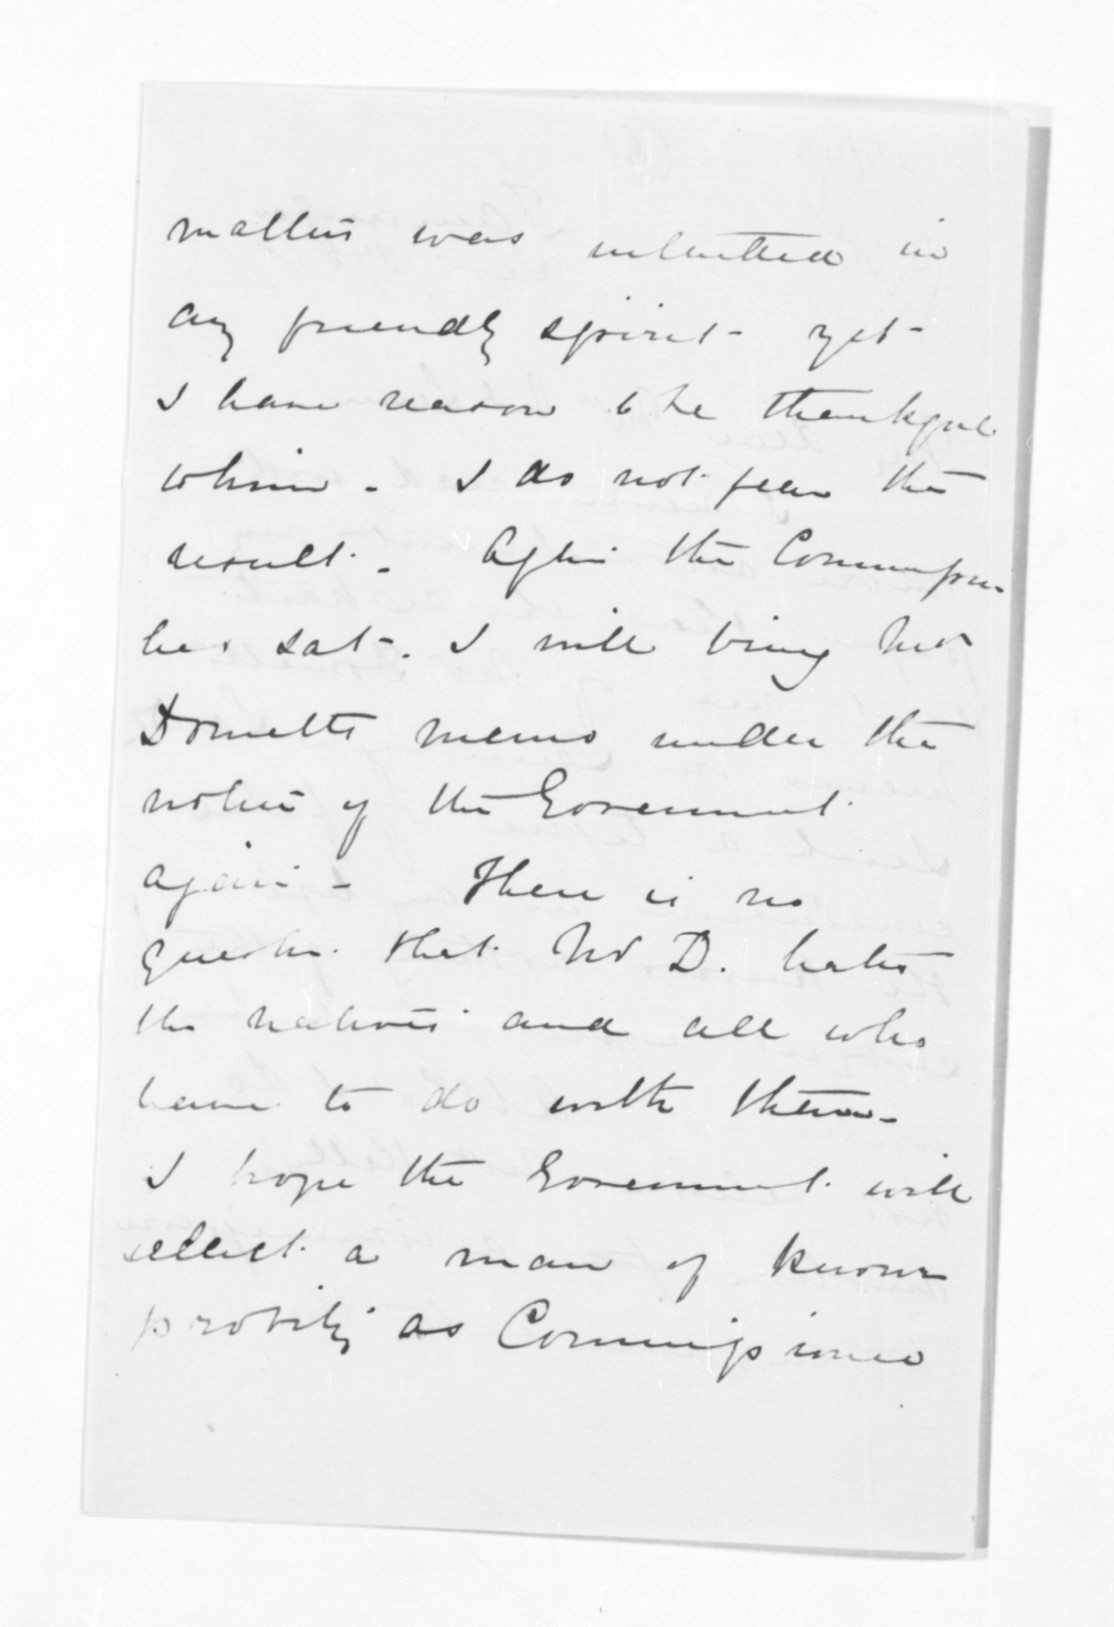 matters was submitted in
any friendly spirit - yet -
I have reason to be thankful
to him - I do not fear the
result. After the Commission
has sat. I will bring Mr
Domett's memo under the
notice of the Government
again - There is no
question that Mr D. hates
the natives and all who
have to do with them -
I hope the Government will
select a man of known
probity as Commissioner